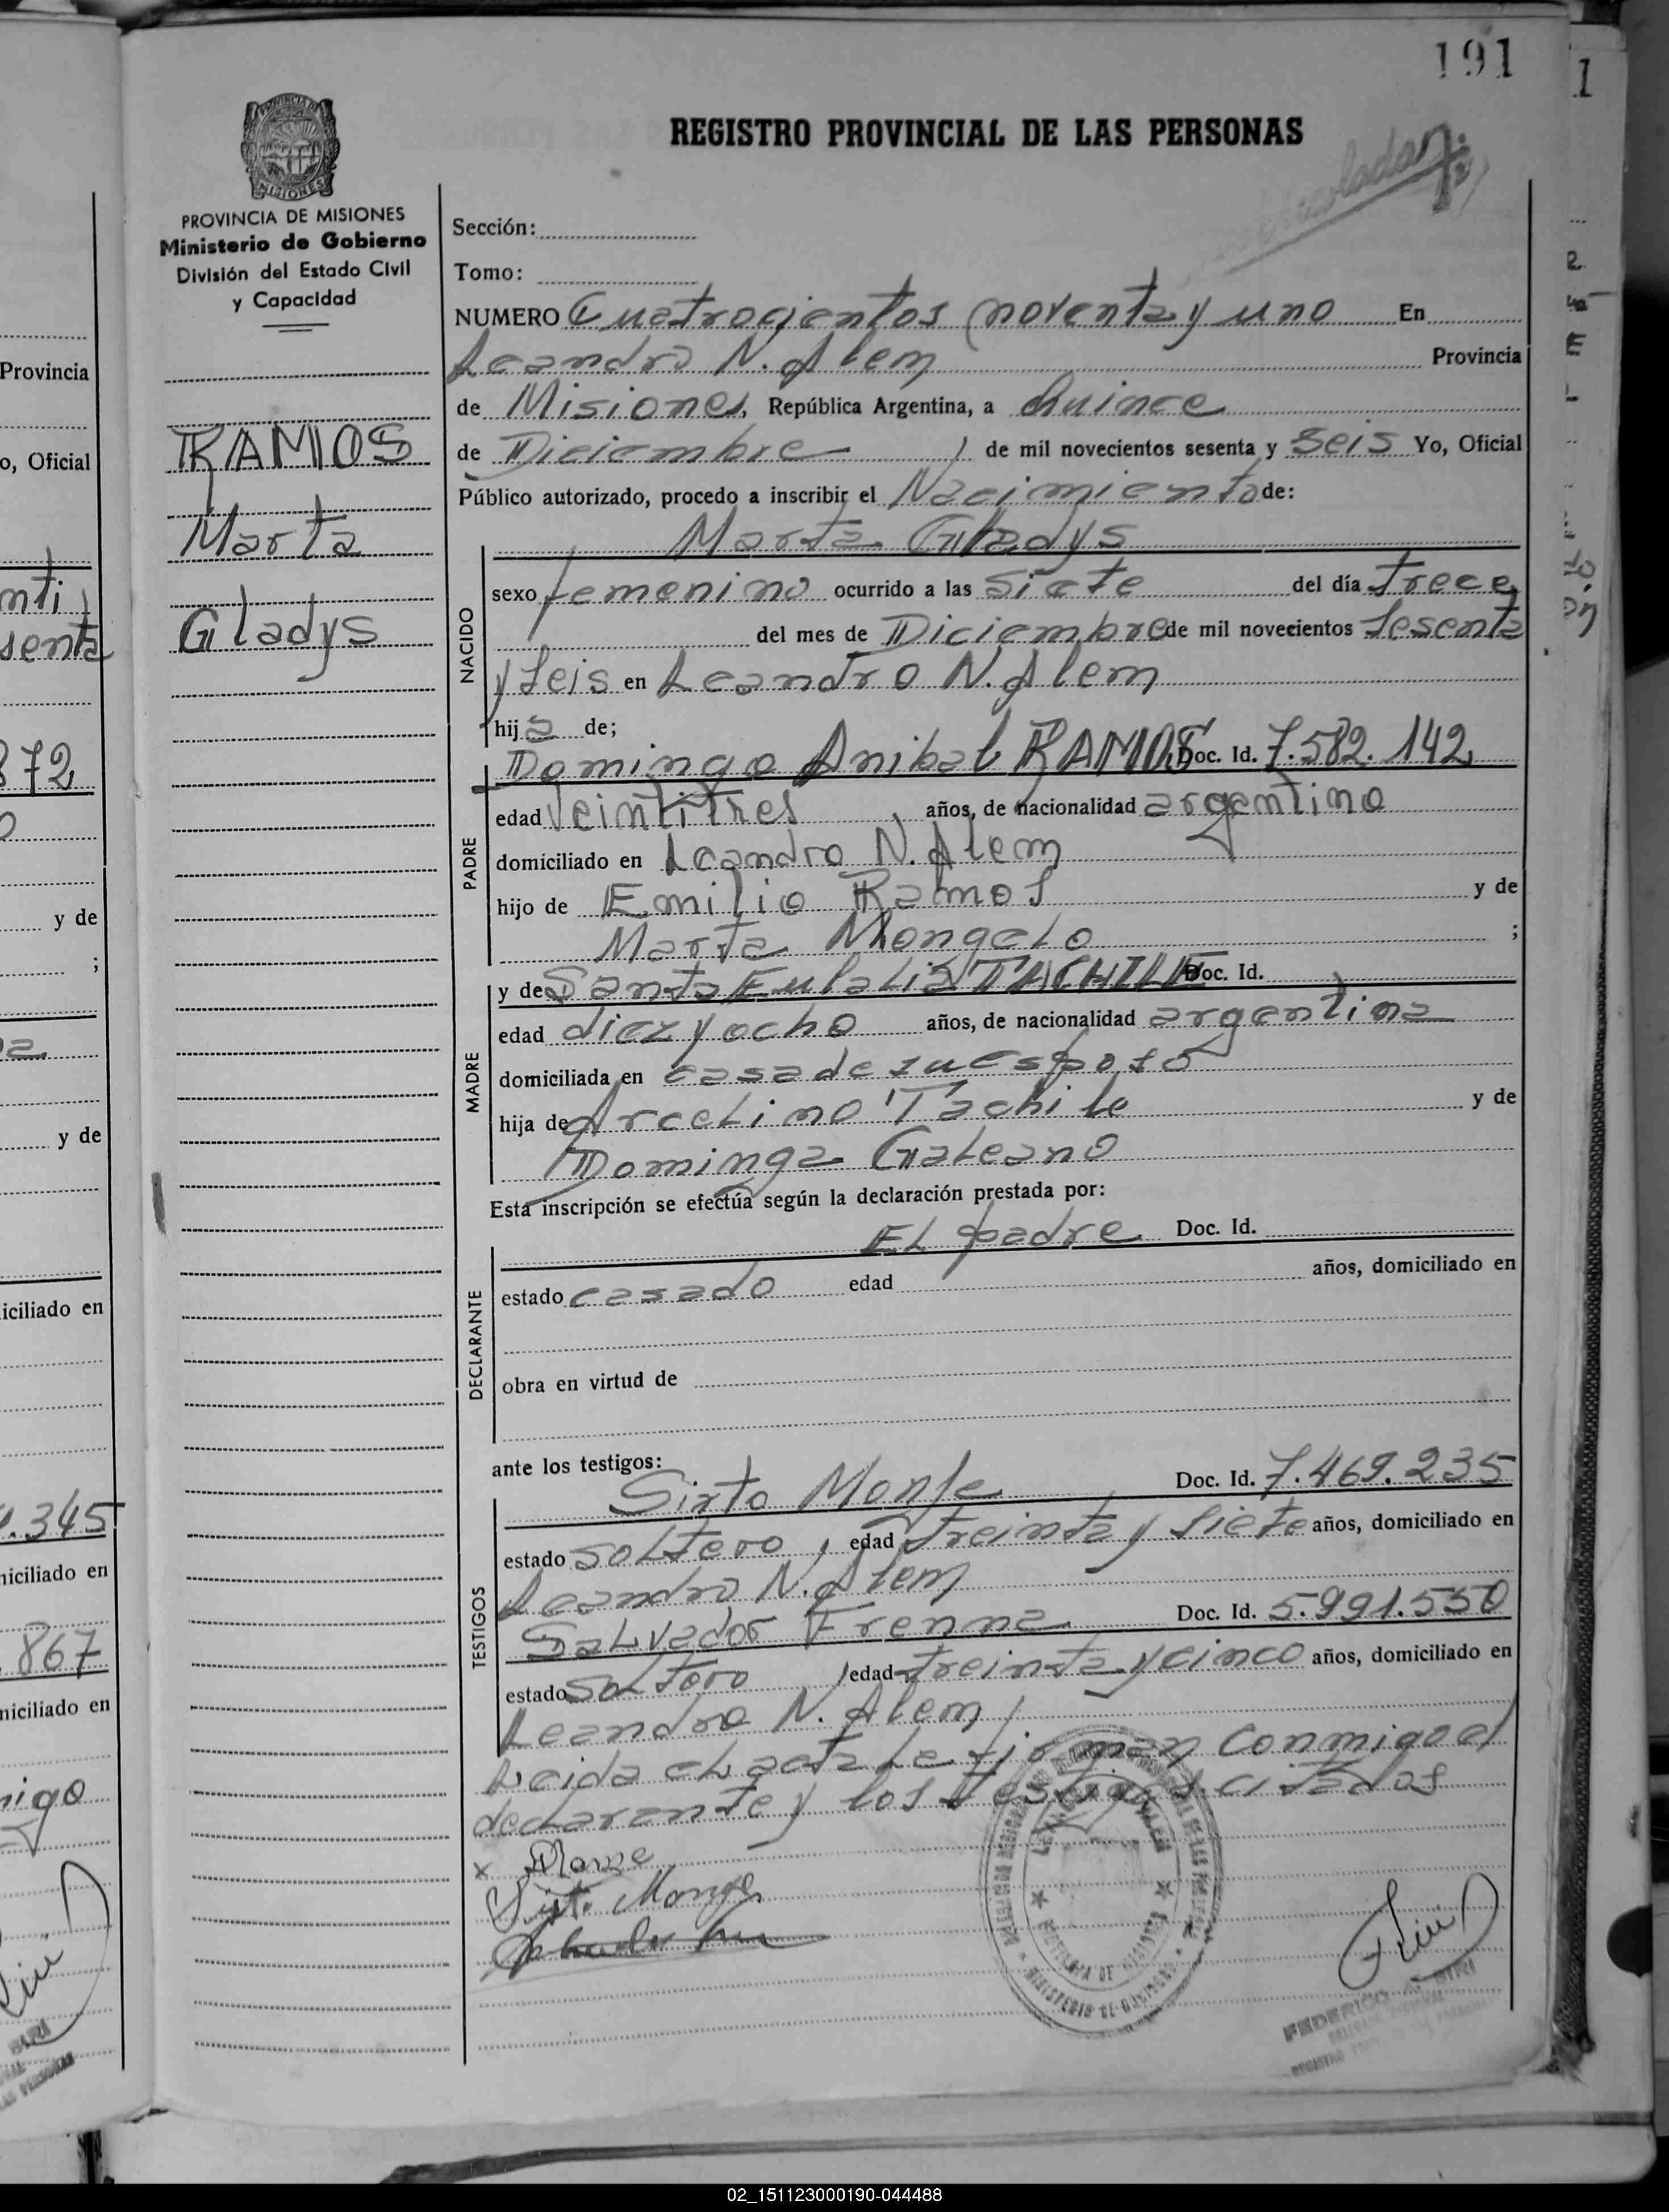 191
1
REGISTRO PROVINCIAL DE LAS PERSONAS
PROVINCIA DE MISIONES
Ministerio de Gobierno
División del Estado Civil
y Capacidad
RAMOS
Marta
Gladys
Sección:
Tomo:
NUMERO Cuatrocientos noventa y uno En
Leandro N. Alem Provincia
de Misiones, República Argentina, a Quince
de Diciembre de mil novecientos sesenta y seis Yo, Oficial
Público autorizado, procedo a inscribir el Nacimiento de:
Marta Gladys
NACIDO
sexo femenino ocurrido a las siete del día trece
del mes de Diciembre de mil novecientos sesenta
y seis en Leandro N. Alem
hija de;
Domingo Anibal RAMOS Doc. Id. 7.582.142
PADRE
edad veintitres años, de nacionalidad argentino
domiciliado en Leandro N. Alem
hijo de Emilio Ramos y de
Marta Mongelo ;
y de Santa Eulalia TACHILE Doc. Id.
MADRE
edad diez y ocho años, de nacionalidad argentina
domiciliada en casa de su esposo
hija de Arcelino Tachile y de
Dominga Galeano
Esta inscripción se efectúa según la declaración prestada por:
El padre Doc. Id.
DECLARANTE
estado casado edad años, domiciliado en
obra en virtud de
ante los testigos:
Sixto Monje Doc. Id. 7.469.235
TESTIGOS
estado soltero, edad treinta y siete años, domiciliado en
Leandro N. Alem
Salvador Frenna Doc. Id. 5.991.550
estado soltero, edad treinta y cinco años, domiciliado en
Leandro N. Alem
Leida el acta la firman conmigo el
declarante y los testigos citados
x
FEDERICO
Provincia
o, Oficial
senta
872
y de
;
y de
iciliado en
.345
niciliado en
867
niciliado en
igo
02_151123000190-044488